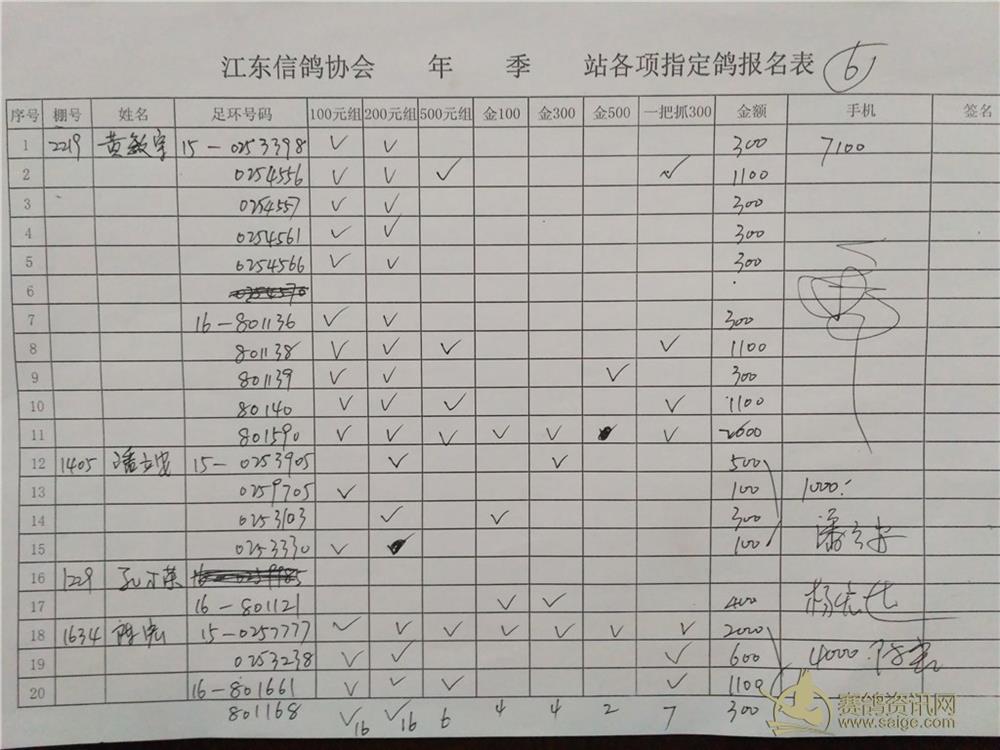 江东信鸽协会 年 季 站各项指定鸽报名表 6
序号 棚号 姓名 足环号码 100元组 200元组 500元组 金100 金300 金500 一把抓300 金额 手机 签名
1 2219 黄敏宇 15-0253398 ✓ ✓ 300 7100
2 0254556 ✓ ✓ ✓ ✓ 1100
3 0254557 ✓ ✓ 300
4 0254561 ✓ ✓ 300
5 0254566 ✓ ✓ 300
6
7 16-801136 ✓ ✓ 300
8 801138 ✓ ✓ ✓ ✓ 1100
9 801139 ✓ ✓ ✓ 300
10 80140 ✓ ✓ ✓ ✓ 1100
11 801590 ✓ ✓ ✓ ✓ ✓ ✓ 2600
12 1405 潘立忠 15-0253905 ✓ ✓ 500
13 0259705 ✓ 100 1000
14 0253103 ✓ ✓ 300
15 0253330 ✓ 100
16 1229
17 16-801121 ✓ ✓ 400
18 1634 15-0257777 ✓ ✓ ✓ ✓ ✓ ✓ ✓ 2000
19 0253238 ✓ ✓ ✓ 600 4000
20 16-801661 ✓ ✓ ✓ ✓ 1100
801168 ✓ ✓ 300
16 16 6 4 4 2 7
赛鸽资讯网
www.saige.com